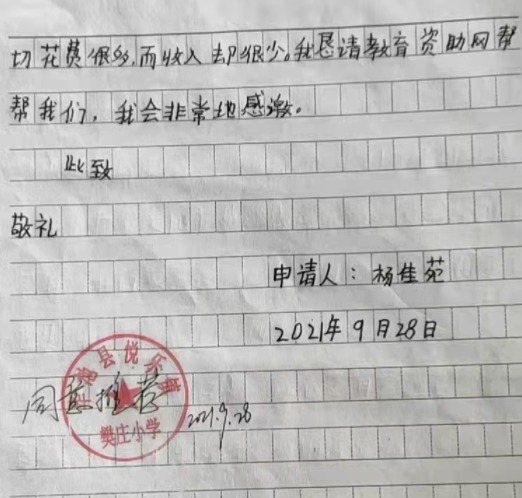 切花费很多,而收入却很少。我恳请教育资助网帮
帮我们,我会非常地感激。
此致
敬礼
申请人:杨佳苑
2021年9月28日
县悦乐镇
樊庄小学
同意推荐
2021.9.28